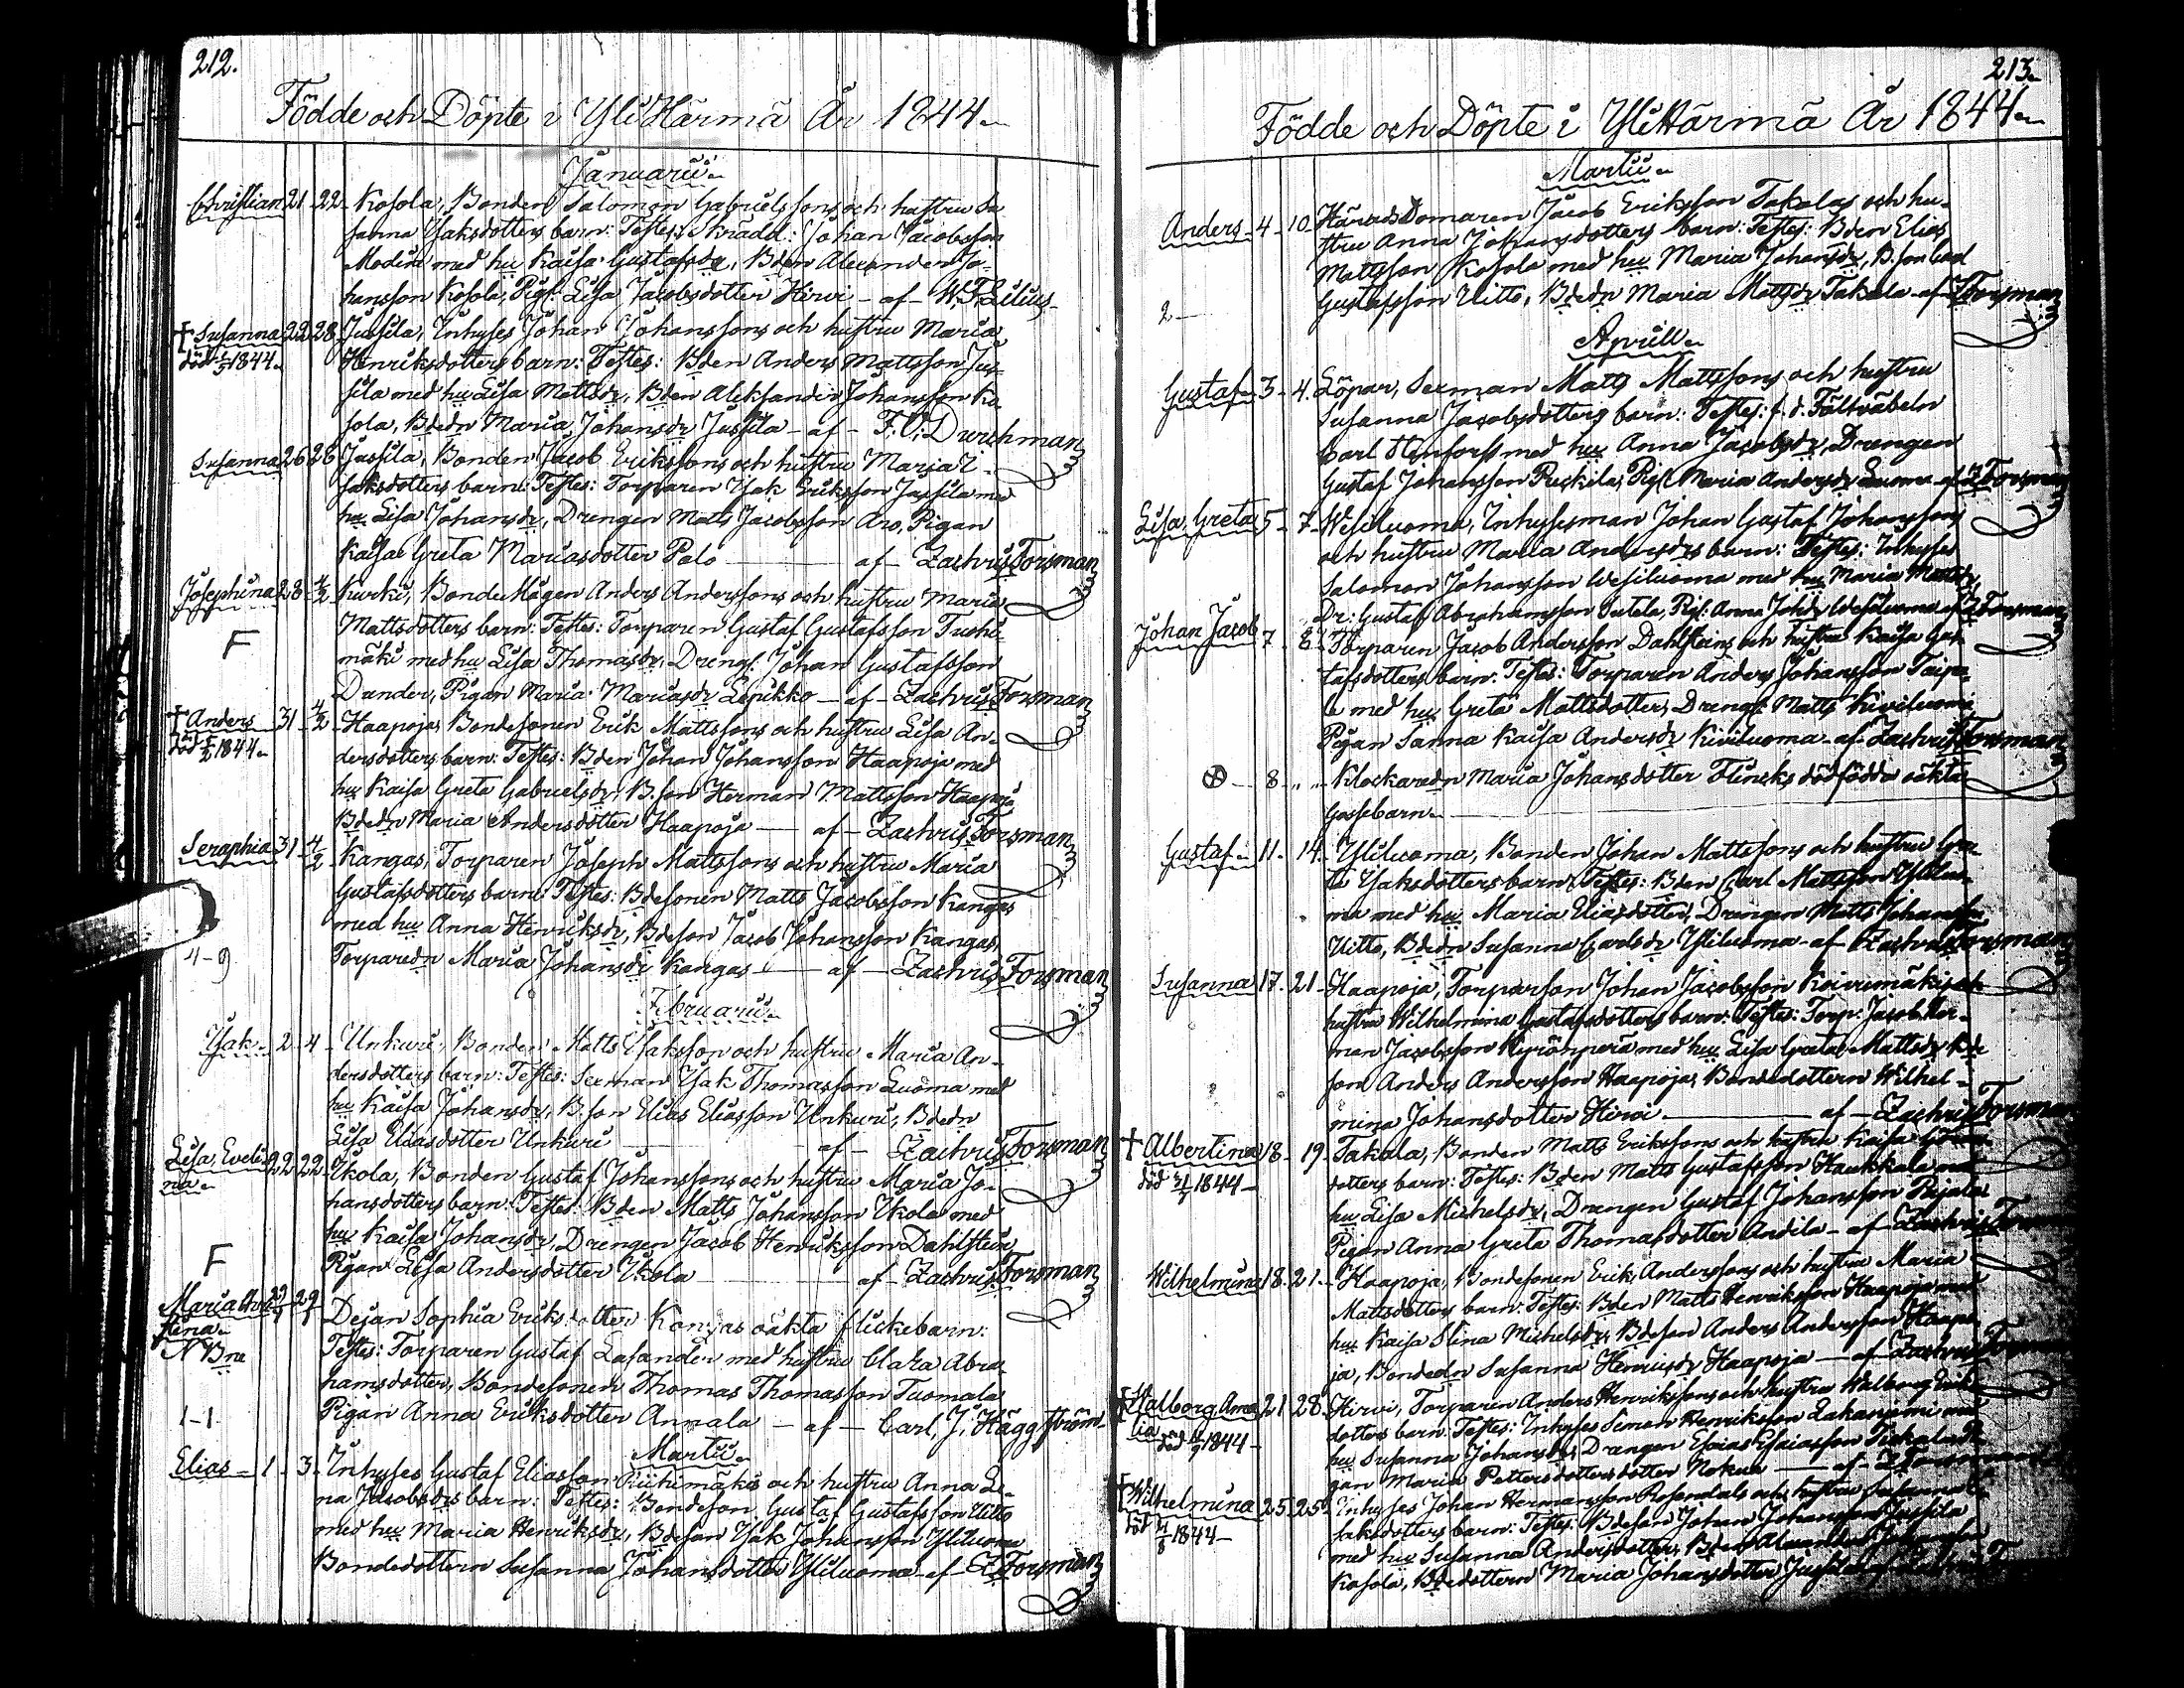 212.
Födde och Döpte i Yli Härmä År 1844.
Januarii.
Christian 21 22 Kosola, Bonden Salomon Gabrielssons och hustru Su-
sanna Isaksdotters barn: Testes: Skrädd: Johan Jacobsson
med hu Kaisa Gustafsdr, Bden Alexander Jo-
hansson Kosola, Pig: Lisa Jacobsdotter Hirvi - af - W. F. Lilius
† Susanna 22 28 Jussila, Inhyses Johan Johanssons och hustru Maria
död 1844. Henriksdotters barn: Testes: Bden Anders Mattsson Jus-
sila med hu Lisa Mattsdr, Bden Aleksander Johansson Ko-
sola, Bdedn Maria Johansdr Jussila - af - F. O. Durchman
Susanna 26 28 Jussila, Bonden Jacob Erikssons och hustru Maria I-
saksdotters barn: Testes: Torparen Isak Eriksson Jussila med
hu Lisa Johansdr, Drengen Matts Jacobsson Aro, Pigan
Kaisa Greta Mariasdotter Palo - af - Zachris Forsman
Josephina 28 4/2 Kurki, Bonde Mågen Anders Anderssons och hustru Maria
Mattsdotters barn: Testes: Torparen Gustaf Gustafsson
F
mäki med hu Lisa Thomasdr, Drengs: Johan Gustafsson
Dander, Pigan Maria Mariasdr Lepikko - af - Zachris Forsman
† Anders 31 4/2 Haapoja, Bondesonen Erik Mattssons och hustru Lisa An-
död 1844. dersdotters barn: Testes: Bden Johan Johansson Haapoja med
hu Kaisa Greta Gabrielsdr, B.son Herman Mattsson Haapoja,
Bdedn Maria Andersdotter Haapoja - af - Zachris Forsman
Seraphia 31 4/2 Kangas, Torparen Joseph Mattssons och hustru Maria
Gustafsdotters barn: Testes: Bdesonen Matts Jacobsson Kangas
med hu Anna Henriksdr, Bdeson Jacob Johansson Kangas,
4-9 Torparedn Maria Johansdr Kangas - af - Zachris Forsman
Februarii.
Isak 2 4 Unkuri, Bonden Matts Isaksson och hustru Maria An-
dersdotters barn: Testes: Seeman Isak Thomasson Luoma med
hu Kaisa Johansdr, B.son Elias Eliasson Unkuri, Bdedn
Lisa Eliasdotter Unkuri - af - Zachris Forsman
Lisa Eveli- 22 22 Ikola, Bonden Gustaf Johanssons och hustru Maria Jo-
na. hansdotters barn: Testes: Bden Matts Johansson Ikola med
hu Kaisa Johansdr, Drengen Jacob Henriksson Dahlstein
F Pigan Lisa Andersdotter Ikola - af - Zachris Forsman
Dejan Sophia Eriksdotter Kangas oäkta flickebarn:
Testes: Torparen Gustaf Lasander med hustru Clara Abra-
hamsdotter, Bondesonen Thomas Thomasson Tuomala
1-1 Pigan Anna Eriksdotter Annala - af - Carl J. Häggström
Martii.
Elias 1 3 Inhyses Gustaf Eliasson Riihimäkis och hustru Anna Le-
na Jacobsdrs barn: Testes: Bondeson Gustaf Gustafsson Uitto
med hu Maria Henriksdr, Bdeson Isak Johansson Yliluoma
Bondedottern Susanna Johansdotter Yliluoma - af - Z Forsman
213.
Födde och Döpte i Yli Härmä År 1844.
Martii.
Anders 4 10 Härads Domaren Jacob Eriksson Takalas och hu-
stru Anna Johansdotters barn: Testes: Bden Elias
Mattsson Kosola med hu Maria Johansdr, B.son Carl
2 Gustafsson Uitto, Bdedn Maria Mattsdr Takala - af Forsman
Aprill.
Gustaf 3 4 Löpar, Seeman Matts Mattssons och hustru
Susanna Jacobsdotters barn: Testes: f.d. Fältväbeln
Carl Henforss med hu Anna Jacobsdr, Drengen
Gustaf Johansson Puskila, Pig: Maria Andersdr Luoma af Z Forsman
Lisa Greta 5 7 Wesiluoma, Inhysesman Johan Gustaf Johanssons
och hustru Maria Andersdrs barn: Testes: Inhyses
Salomon Johansson Wesiluoma med hu Maria Mattsdr,
Dr: Gustaf Abrahamsson Sutela, Pig: Anna Johsdr Wesiluoma af Z Forsman
Johan Jacob 7 8 Torparen Jacob Andersson Dahlsteins och hustru Kaisa Gus-
tafsdotters barn: Testes: Torparen Anders Johansson Taipa-
le med hu Greta Mattsdotter, Dreng: Matts Kiviluoma
Pigan Sanna Kaisa Andersdr Kiviluoma - af Zachris Forsman
8 " Klockaredn Maria Johansdotter Flincks dödfödda oäkta
gossebarn.
Gustaf 11 14 Yliluoma, Bonden Johan Mattssons och hustru Gre-
ta Isaksdotters barn: Testes: Bden Carl Mattsson Yliluo-
ma med hu Maria Eliasdotter, Drengen Matts Johansson
Uitto, Bdedn Susanna Carlsdr Yliluoma - af Zachris Forsman
Susanna 17 21 Haapoja, Torparson Johan Jacobsson Koivumäkis och
hustru Wilhelmina Gustafsdotters barn: Testes: Torp: Jacob Her-
man Jacobsson Kyrönperä med hu Lisa Greta Mattsdr, Bde
son Anders Andersson Haapoja, Bondedottern Wilhel-
mina Johansdotter Hirvi - af - Zachris Forsman
† Albertina 18 19 Takala, Bonden Matts Erikssons och hustru Kaisa
död 1844 dotters barn: Testes: Bden Matts Gustafsson Haukkala med
hu Lisa Michelsdr, Drengen Gustaf Johansson
Pigan Anna Greta Thomasdotter Andila - af Zachris Forsman
Wilhelmina 18 21 Haapoja, Bondesonen Erik Anderssons och hustru Maria
Mattsdotters barn: Testes: Bden Matts Henriksson Haapoja med
hu Kaisa Stina Michelsdr, Bdeson Anders Andersson Haapo-
ja, Bondedn Susanna Henricsdr Haapoja - af Zachris Forsman
† Walborg Ama- 21 28 Hirvi, Torparen Anders Henrikssons och hustru Walborg Eriks-
lia död 1844 dotters barn: Testes: Inhyses Simon Henriksson Lakaniemi med
hu Susanna Johansdr, Drengen Esaias Esaiasson
gan Maria Pettersdottersdotter Nokua - af - Z Forsman
† Wilhelmina 25 25 Inhyses Johan Hermansson Rosendals och hustru Susanna I-
död 1844 saksdotters barn: Testes: Bdeson Johan Johansson Jussila
med hu Susanna Andersdotter, Bden Alexander Johansson
Kosola, Bdedottern Maria Johansdotter Jussila